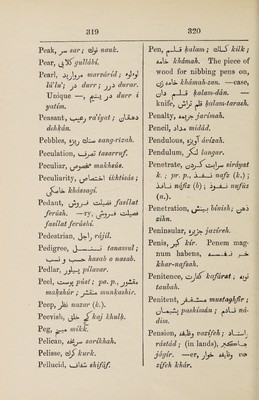 319
Peak, سر sar; نوك nauk.
Pear, گلابی gullábí.
Pearl, مرواريد marzáríd; لولو
lú'lu'; در durr; درر durar.
Unique —, در يتيم durr i
yatím.
Peasant, رعيت ra'íyat; دهقان
dehkán.
Pebbles, سنگ ريزه sang-rizah.
Peculation, تصرف tasarruf.
Peculiar, مخصوص makhsús.
Peculiarity, اختصاص ikhtisás;
خاصگی khássagí.
Pedant, فاضل فروش fasílat
ferúsh. —ry, فضيلت فروشی
fasílat ferúshí.
Pedestrian, راجل rájil.
Pedigree, تناسل tanassul;
حسب و نسب hasab o nasab.
Pedlar, پيلور pílavar.
Peel, پوست púst; pa. p., مقشور
makshúr; منقشر munkashir.
Peep, نظر nazar (k.).
Peevish, كج خلق kaj khulḳ.
Peg, ميخ míkk.
Pelican, سرخان sarkhah.
Pelisse, كرك kurk.
Pellucid, شفاف shifáf.
320
Pen, قلم ḳalam; كلك kilk;
خامه khámah. The piece of
wood for nibbing pens on,
خامه زن khámah-zan. —case,
قلمدان ḳalam-dán. —
knife, قلم تراش ḳalam-tarash.
Penalty, جريمه jarímah.
Pencil, مداد midád.
Pendulous, آويزان ávízan.
Pendulum, لنگر langar.
Penetrate, سرايت كردن siráyat
k. ; pr. p., نافذ nafs (k.);
نافذ náfiz (b); نفوذ nufúz
(n.).
Penetration, بينش bínish; ذهن
zihn.
Peninsular, جزيره jazíreh.
Penis, كير kír. Penem mag-
num habens, خرنفسه
khar-nafsah.
Penitence, كفارت kafúrat; توبه
taubah.
Penitent, مستغفر mustaghfir;
پشيمان pashímán; نادم ná-
dim.
Pension, وظيفه vazífeh; راستاد
rástád; (in lands), جاگير
jágír. —er, وظيفه خوار va-
zífeh khár.